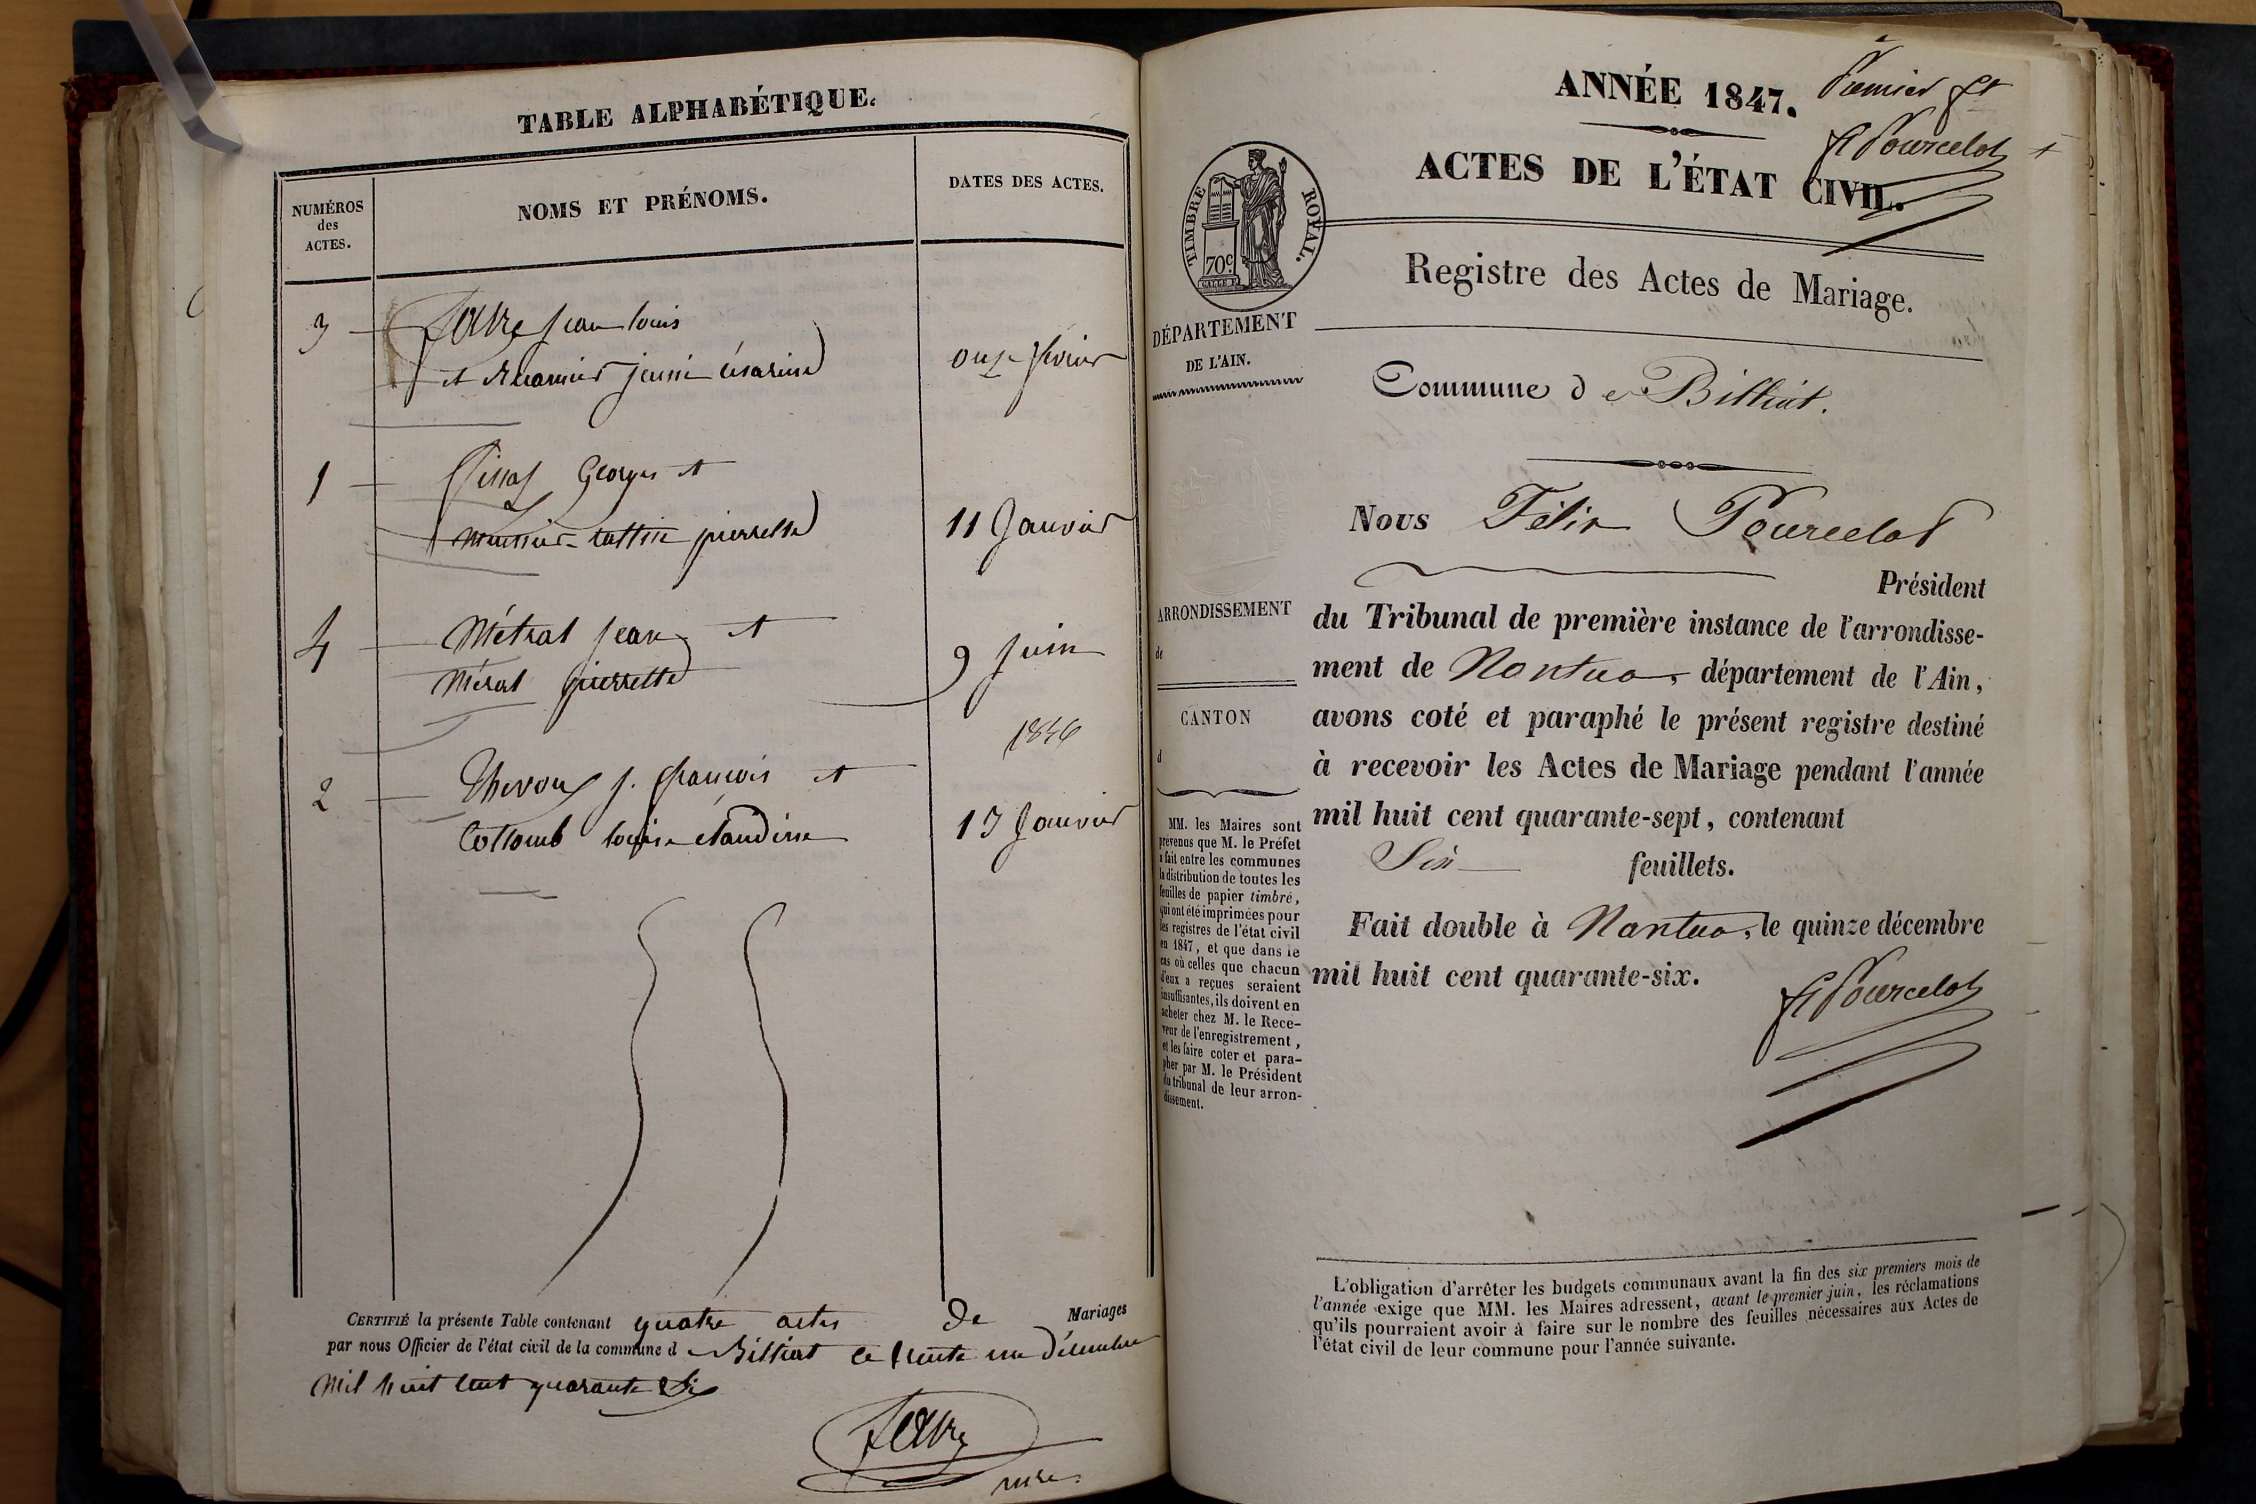 TABLE ALPHABÉTIQUE.
NUMÉROS
des
ACTES.
NOMS ET PRÉNOMS.
DATES DES ACTES.
3
Favre Jean louis
et jenni césarine
onze février
1
Georges et
pierrette
11 Janvier
4
Métral jean et
Méral pierrette
9 juin
1846
2
Thevoux j. françois et
Collomb louise claudine
13 Janvier
CERTIFIÉ la présente Table contenant quatre actes de Mariages
par nous Officier de l'état civil de la commune d Billiat ce trente un décembre
Mil huit cent quarante Six
Favre
mre.
ANNÉE 1847.
Premier ft
F Pourcelot
ACTES DE L'ÉTAT CIVIL.
TIMBRE ROYAL.
70c
Registre des Actes de Mariage.
DÉPARTEMENT
DE L'AIN.
Commune de Billiat.
Nous Félix Pourcelot
Président
ARRONDISSEMENT
de
du Tribunal de première instance de l'arrondisse-
ment de Nantua, département de l'Ain,
CANTON
d
avons coté et paraphé le présent registre destiné
à recevoir les Actes de Mariage pendant l'année
mil huit cent quarante-sept, contenant
Six feuillets.
Fait double à Nantua, le quinze décembre
mil huit cent quarante-six.
F Pourcelot
MM. les Maires sont
prévenus que M. le Préfet
a fait entre les communes
la distribution de toutes les
feuilles de papier timbré,
qui ont été imprimées pour
les registres de l'état civil
en 1847, et que dans le
cas où celles que chacun
d'eux a reçues seraient
insuffisantes, ils doivent en
acheter chez M. le Rece-
veur de l'enregistrement,
et les faire coter et para-
pher par M. le Président
du tribunal de leur arron-
dissement.
L'obligation d'arrêter les budgets communaux avant la fin des six premiers mois de
l'année exige que MM. les Maires adressent, avant le premier juin, les réclamations
qu'ils pourraient avoir à faire sur le nombre des feuilles nécessaires aux Actes de
l'état civil de leur commune pour l'année suivante.